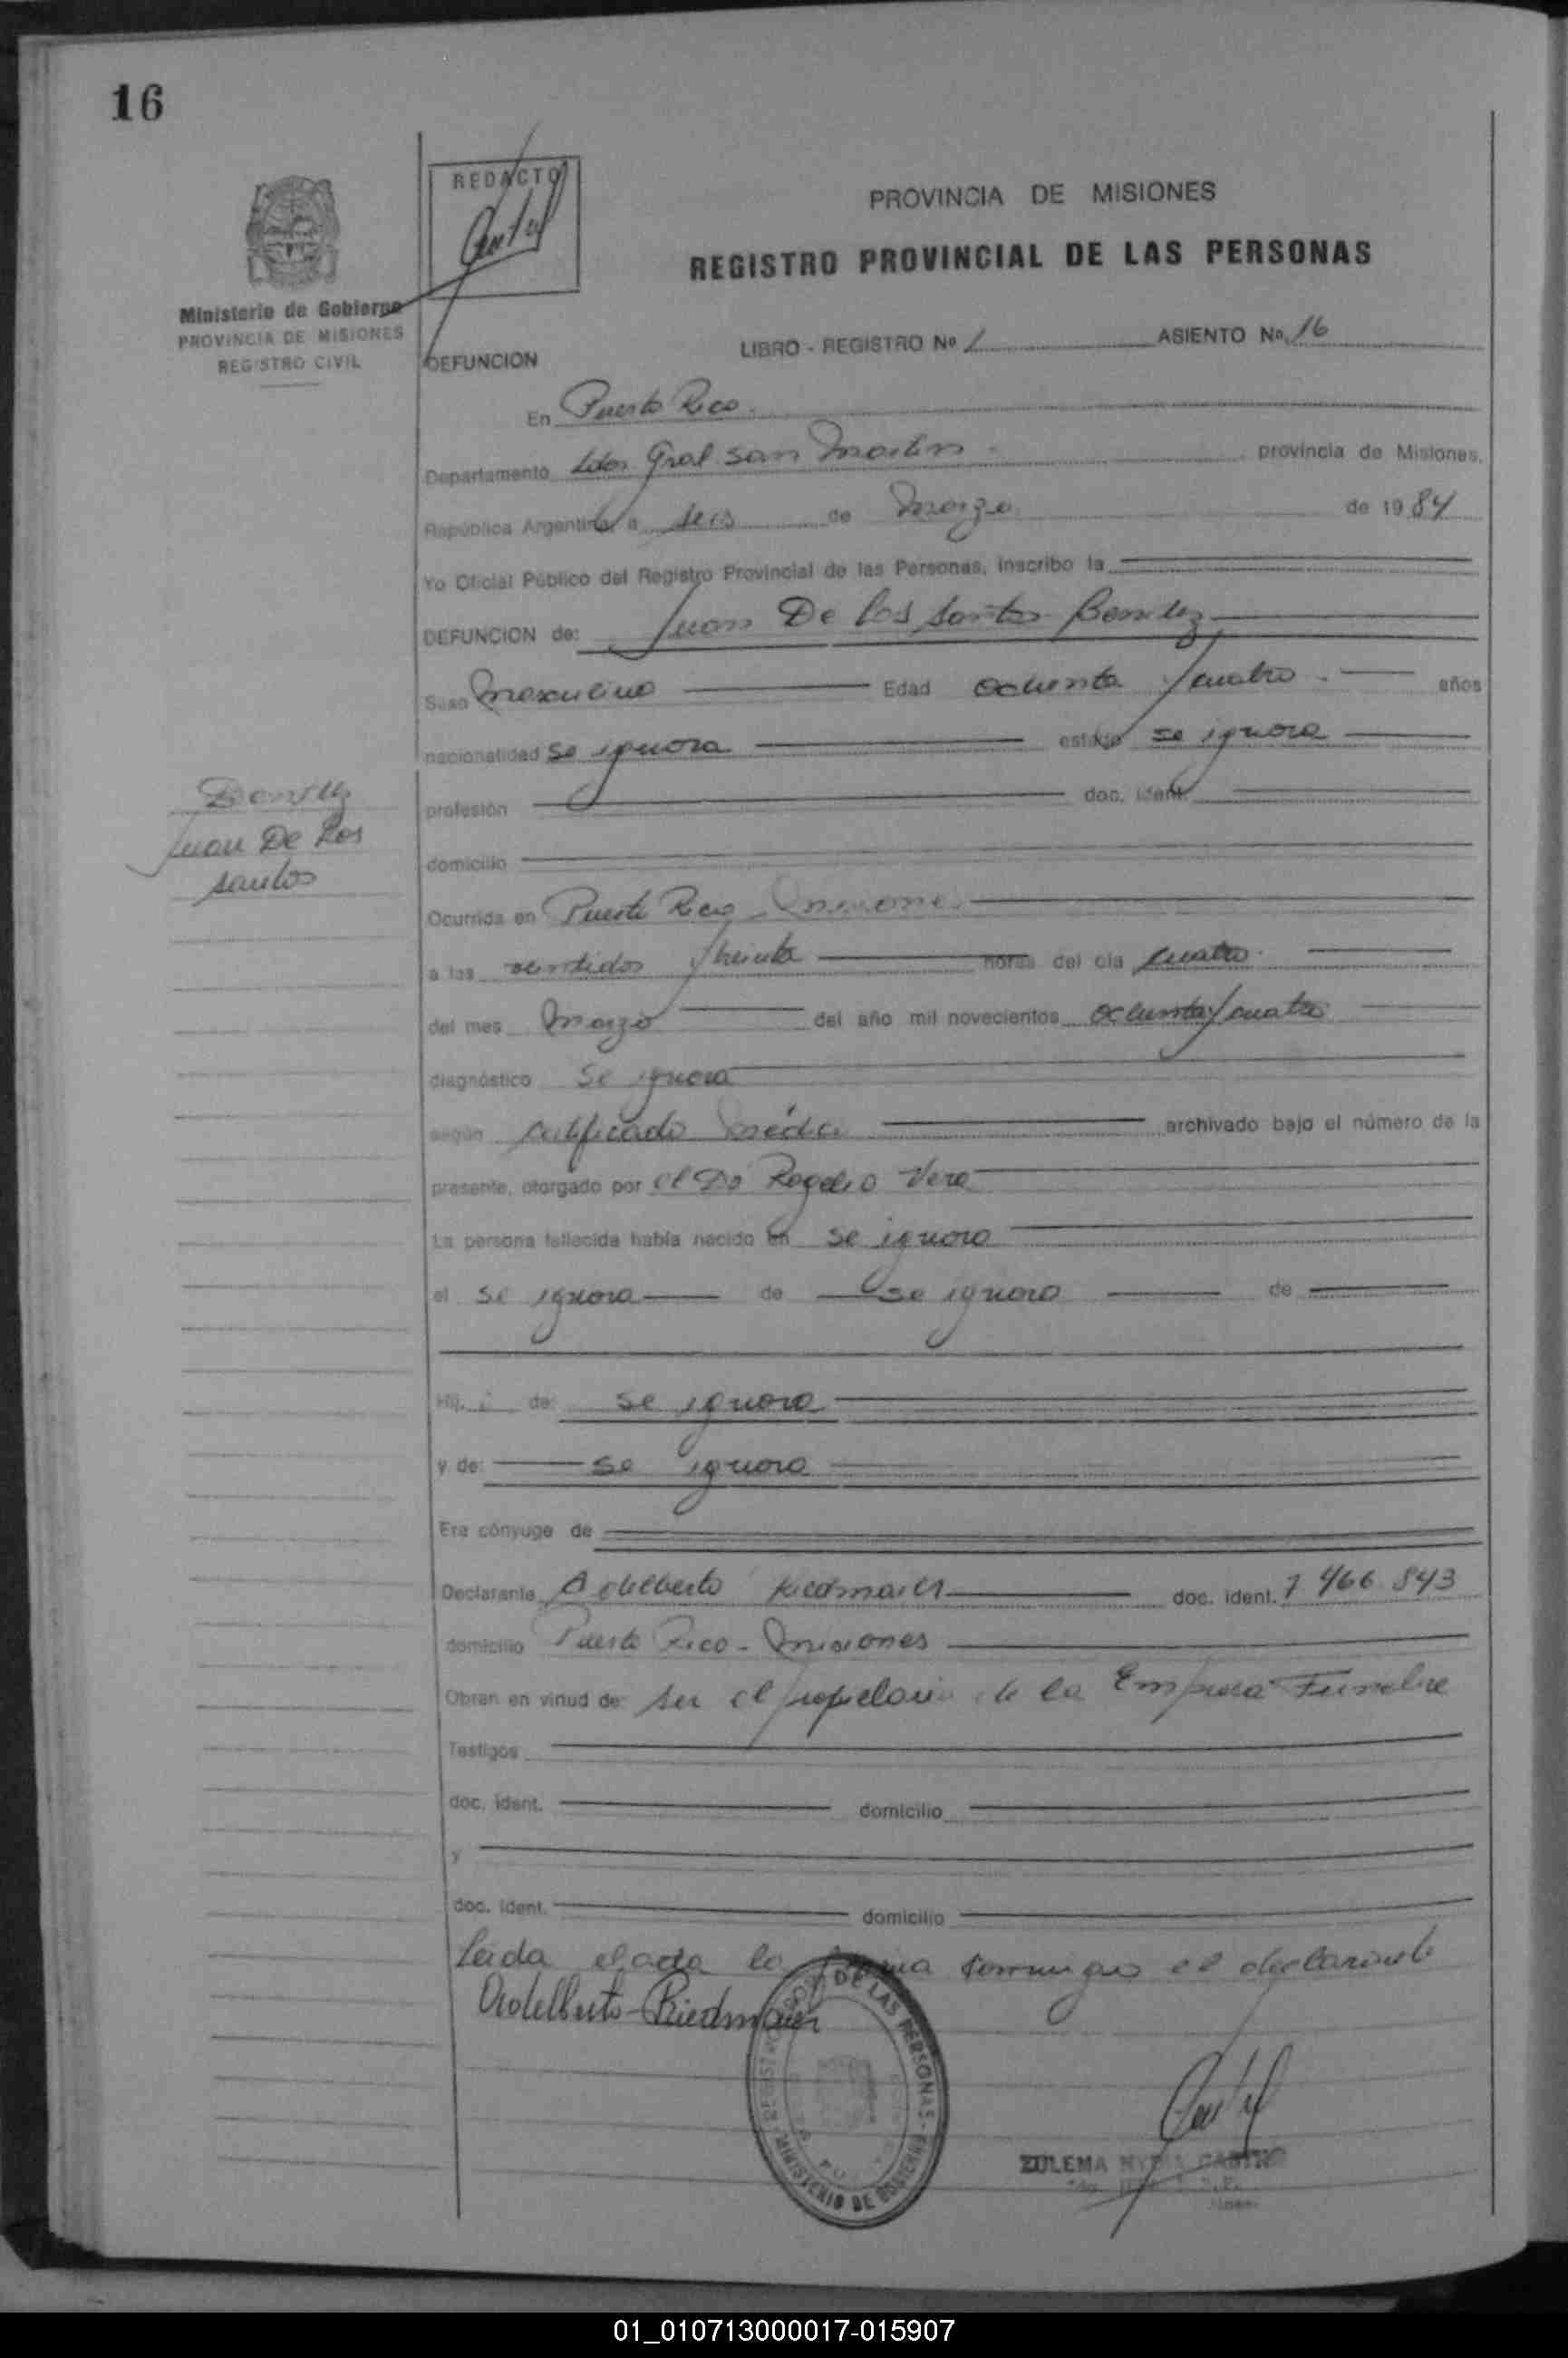 16
REDACTO
PROVINCIA DE MISIONES
REGISTRO PROVINCIAL DE LAS PERSONAS
Ministerio de Gobierno
PROVINCIA DE MISIONES
REGISTRO CIVIL
LIBRO - REGISTRO Nº 1 ASIENTO Nº 16
DEFUNCION
En Puerto Rico.
Departamento Ldor Gral San Martin. provincia de Misiones,
República Argentina, a seis de Marzo de 1984
Yo Oficial Público del Registro Provincial de las Personas, inscribo la
DEFUNCION de: Juan De los Santos Benitez
Sexo Masculino Edad ochenta y cuatro. años
nacionalidad se ignora estado se ignora
Benitez
Juan De Los
Santos
profesión doc. ident.
domicilio
Ocurrida en Puerto Rico - Misiones.
a las veintidos y treinta horas del día cuatro.
del mes Marzo del año mil novecientos ochenta y cuatro
diagnóstico Se ignora
según certificado médico archivado bajo el número de la
presente, otorgado por el Dr Rogelio Vera
La persona fallecida había nacido en se ignora
el se ignora de se ignora de
Hij. o de: se ignora
y de: se ignora
Era cónyuge de
Declarante Adelberto Riedmaier doc. ident. 7 466 843
domicilio Puerto Rico - Misiones
Obran en virtud de: ser el propietario de la Empresa Funebre
Testigos
doc. ident. domicilio
y
doc. ident. domicilio
Leida el acta la firma conmigo el declarante
Adelberto Riedmaier
REGISTRO DE LAS PERSONAS
MINISTERIO DE GOBIERNO
ZULEMA CASTRO
01_010713000017-015907